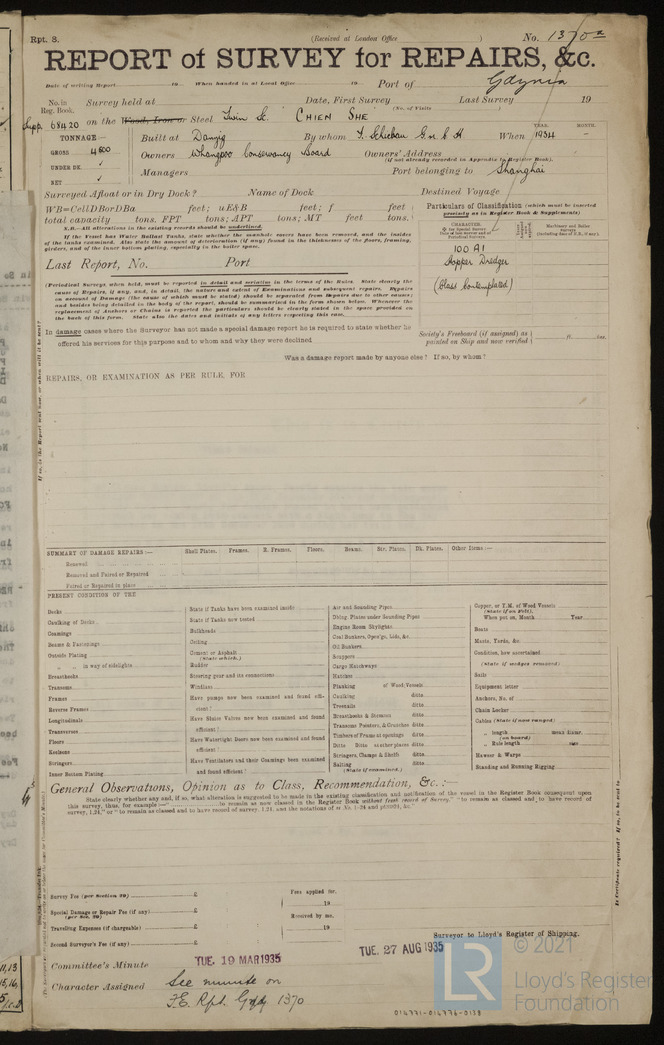 Rpt. 8.
(Received at London Office )
No. 1370a
REPORT of SURVEY for REPAIRS, &c.
Date of writing Report 19 When handed in at Local Office 19 Port of Gdynia
No. in Reg. Book. Survey held at Date, First Survey Last Survey 19
(No. of Visits
Supp. 68420 on the Wood, Iron or Steel Twin Sc. CHIEN SHE
TONNAGE
Built at Danzig By whom F. Schichau G.m.b.H When 1934
YEAR. MONTH.
GROSS 4500
Owners Whangpoo Conservancy Board Owners' Address
(if not already recorded in Appendix to Register Book).
UNDER DK.
NET
Managers Port belonging to Shanghai
Surveyed Afloat or in Dry Dock? Name of Dock Destined Voyage
WB=CellDBorDBa feet; uE&B feet; f feet
total capacity tons. FPT tons; APT tons; MT feet tons.
N.B.—All alterations in the existing records should be underlined.
If the Vessel has Water Ballast Tanks, state whether the manhole covers have been removed, and the insides
of the tanks examined. Also state the amount of deterioration (if any) found in the thicknesses of the floors, framing,
girders, and of the inner bottom plating, especially in the boiler space.
Particulars of Classification (which must be inserted
precisely as in Register Book & Supplements)
CHARACTER.
Machinery and Boiler Surveys
(including date of N.B., if any).
100 A1
Hopper Dredger
(Class Contemplated)
Last Report, No. Port
(Periodical Surveys, when held, must be reported in detail and seriatim in the terms of the Rules. State clearly the
cause of Repairs, if any, and, in detail, the nature and extent of Examinations and subsequent repairs. Repairs
on account of Damage (the cause of which must be stated) should be separated from Repairs due to other causes;
and besides being detailed in the body of the report, should be summarized in the form shown below. Whenever the
replacement of Anchors or Chains is reported the particulars should be clearly stated in the space provided on
the back of this form. State also the dates and initials of any letters respecting this case.
In damage cases where the Surveyor has not made a special damage report he is required to state whether he
offered his services for this purpose and to whom and why they were declined
Society's Freeboard (if assigned) as
painted on Ship and now verified ft. ins.
Was a damage report made by anyone else? If so, by whom?
REPAIRS, OR EXAMINATION AS PER RULE, FOR
SUMMARY OF DAMAGE REPAIRS:— Shell Plates. Frames. R. Frames. Floors. Beams. Str. Plates. Dk. Plates. Other Items:—
Renewed
Removed and Faired or Repaired
Faired or Repaired in place
PRESENT CONDITION OF THE
Decks
Caulking of Decks
Coamings
Beams & Fastenings
Outside Plating
" " in way of sidelights
Breasthooks
Transoms
Frames
Reverse Frames
Longitudinals
Transverses
Floors
Keelsons
Stringers
Inner Bottom Plating
State if Tanks have been examined inside
State if Tanks now tested
Bulkheads
Ceiling
Cement or Asphalt
(State which.)
Rudder
Steering gear and its connections
Windlass
Have pumps now been examined and found efficient?
Have Sluice Valves now been examined and found
efficient?
Have Watertight Doors now been examined and found
efficient?
Have Ventilators and their Coamings been examined
and found efficient?
Air and Sounding Pipes
Dblng. Plates under Sounding Pipes
Engine Room Skylights
Coal Bunkers, Open'gs, Lids, &c.
Oil Bunkers
Scuppers
Cargo Hatchways
Hatches
Planking of Wood Vessels
Caulking ditto
Treenails ditto
Breasthooks & Stemson ditto
Transoms, Pointers, & Crutches ditto
Timbers of Frame at openings ditto
Ditto Ditto at other places ditto
Stringers, Clamps & Shelfs ditto
Salting ditto
(State if examined.)
Copper, or Y.M. of Wood Vessels
(State if on Felt).
When put on, Month Year
Boats
Masts, Yards, &c.
Condition, how ascertained
(State if wedges removed)
Sails
Equipment letter
Anchors, No. of
Chain Locker
Cables (State if now ranged)
" length mean diamr.
(on board)
" Rule length size
Hawser & Warps
Standing and Running Rigging
General Observations, Opinion as to Class, Recommendation, &c.:—
State clearly whether any and, if so, what alteration is suggested to be made in the existing classification and notification of the vessel in the Register Book consequent upon
this survey, thus, for example:— to remain as now classed in the Register Book without fresh record of Survey," "to remain as classed and to have record of
Survey Fee (per Section 29) £
Special Damage or Repair Fee (if any) £
(per Sec. 29)
Travelling Expenses (if chargeable) £
Second Surveyor's Fee (if any) £
Fees applied for,
19
Received by me,
19
Surveyor to Lloyd's Register of Shipping.
Committee's Minute TUE. 19 MAR 1935 TUE. 27 AUG 1935
Character Assigned See minute on
F.E. Rpt. Gdy 1370
LR
© 2021
Lloyd's Register
Foundation
014771-014776-0138